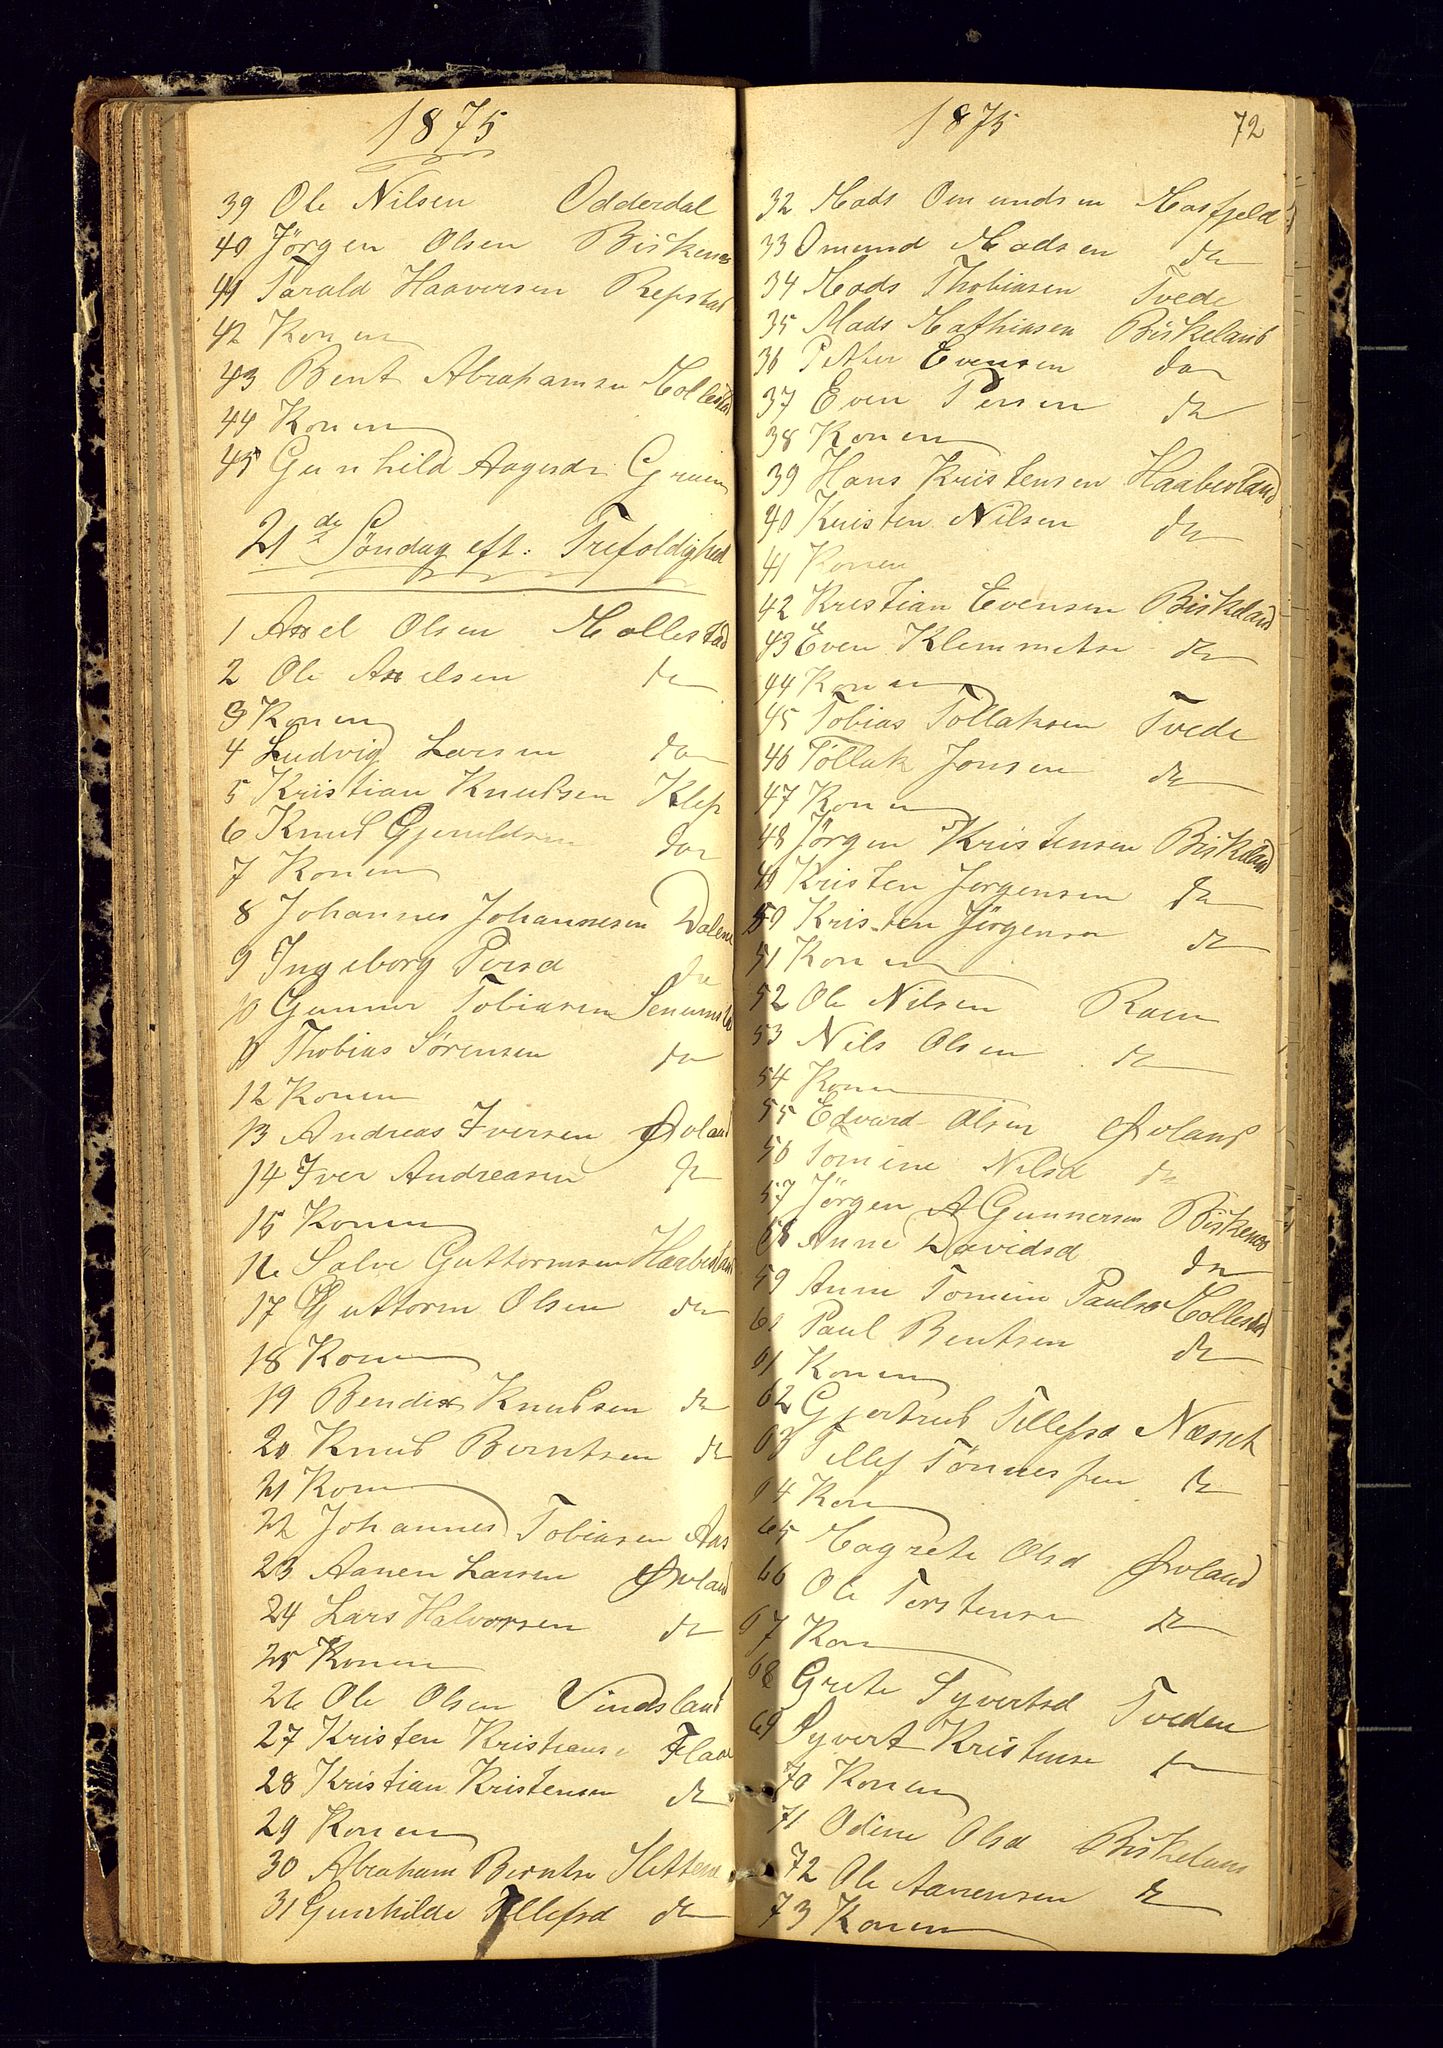 1875
39 Ole Nilsen Odderdal
40 Jörgen Olsen Birkenes
41 Tarald Haaversen Repstad
42 Konen
43 Bent Abrahamsen Mollestad
44 Konen
45 Gunhild Aagesdr
21de Söndag eft: Trefoldighed
1 Axel Olsen Mollestad
2 Ole Axelsen do
3 Konen
4 Ludvig Larsen do
5 Kristian Knudsen Klep
6 Knud Gjeruldsen do
7 Konen
8 Johannes Johannesen Dalene
9 Ingeborg Persd do
10 Gunner Tobiasen
11 Thobias Sörensen do
12 Konen
13 Andreas Iversen Øvland
14 Iver Andreasen do
15 Konen
16 Salve Guttormsen Haabesland
17 Guttorm Olsen do
18 Konen
19 Bendix Knudsen do
20 Knud Berntsen do
21 Konen
22 Johannes Tobiasen Aas
23 Aanen Larsen Øvland
24 Lars Halvorsen do
25 Konen
26 Ole Olsen Vindsland
27 Kristen Kristiansen Flaa
28 Kristian Kristensen do
29 Konen
30 Abraham Berntsen
31 Gunhilde Tellefsd do
1875 72
32 Mads Omundsen Mosfjeld
33 Omund Madsen do
34 Mads Thobiasen Tvede
35 Mads Mathiasen Birkeland
36 Petter Evensen do
37 Even Persen do
38 Konen
39 Hans Kristensen Haabesland
40 Kristen Nilsen do
41 Konen
42 Kristian Evensen Birkeland
43 Even Klemmetsen do
44 Konen
45 Tobias Tollaksen Tvede
46 Tollak Jonsen do
47 Konen
48 Jörgen Kristensen Birkeland
49 Kristen Jørgensen do
50 Kristen Jörgensen do
51 Konen
52 Ole Nilsen Raen
53 Nils Olsen do
54 Konen
55 Edvard Olsen Øvland
56 Tomine Nilsd do
57 Jörgen A Gunnersen Birkenes
58 Anne Davidsd do
59 Anne Tomine Paulsd Mollestad
60 Paul Bentsen do
61 Konen
62 Gjertrud Tellefsd Næsset
63 Tellef Tönnesen do
64 Kon
65 Magrete Olsd Øvland
66 Ole Terstensen do
67 Kon
68 Grete Syvertsd Tveden
69 Syvert Kristensen do
70 Konen
71 Odine Olsd Birkeland
72 Ole Aanensen do
73 Konen